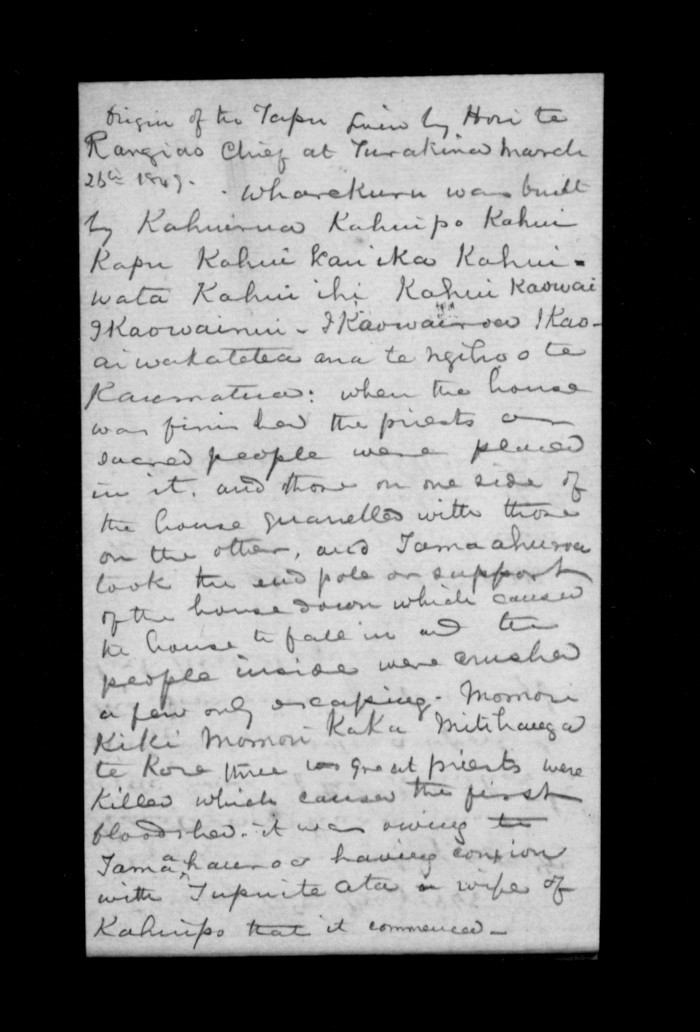 Origin of the Tapu Given by Hori te
Rangiao Chief at Turakina March
26th 1849. - Wharekura was built
by Kahuirua Kahuipo Kahui
Kapu Kahui kau ika Kahui-
wata Kahui ihi Kahui Kaowai
I Kaowainui - I Kaowairoa I Kao-
ai wakatetea ana te ngihoo te
Kaumatua: when the house
was finished the priests or
sacred people were placed
in it. and those on one side of
the house quarelled with those
on the other, and Tamaahuroa
took the end pole or support
of the house down which caused
the house to fall in and the
people inside were crushed
a few only escaping. Momori
Kiki Momori KaKa Mitihanga
te Kore three great priests were
Killed which caused the first
bloodshed. it was owing to
Tamaahauroa having conxion
with Tupuite ata a wife of
Kahuipo that it commenced -